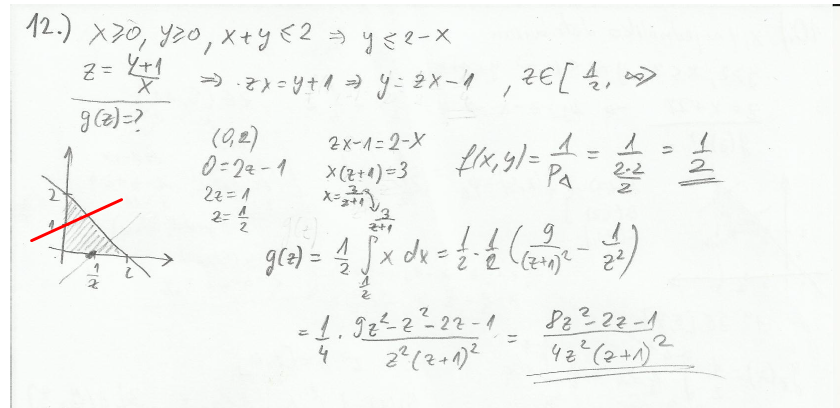 12.) x≥0, y≥0, x+y≤2 ⇒ y≤2-x
z = (y+1)/x ⇒ zx=y+1 ⇒ y=zx-1, z∈[1/2, ∞>
g(z)=?
(0,2)
0=2z-1
2z=1
z=1/2
zx-1=2-x
x(z+1)=3
x=3/(z+1)
f(x,y)=1/P△ = 1/(2·2/2) = 1/2
2
1
1/z
2
g(z) = 1/2 ∫_{1/z}^{3/(z+1)} x dx = 1/2 · 1/2 (9/(z+1)² - 1/z²)
= 1/4 · (9z²-z²-2z-1)/(z²(z+1)²) = (8z²-2z-1)/(4z²(z+1)²)